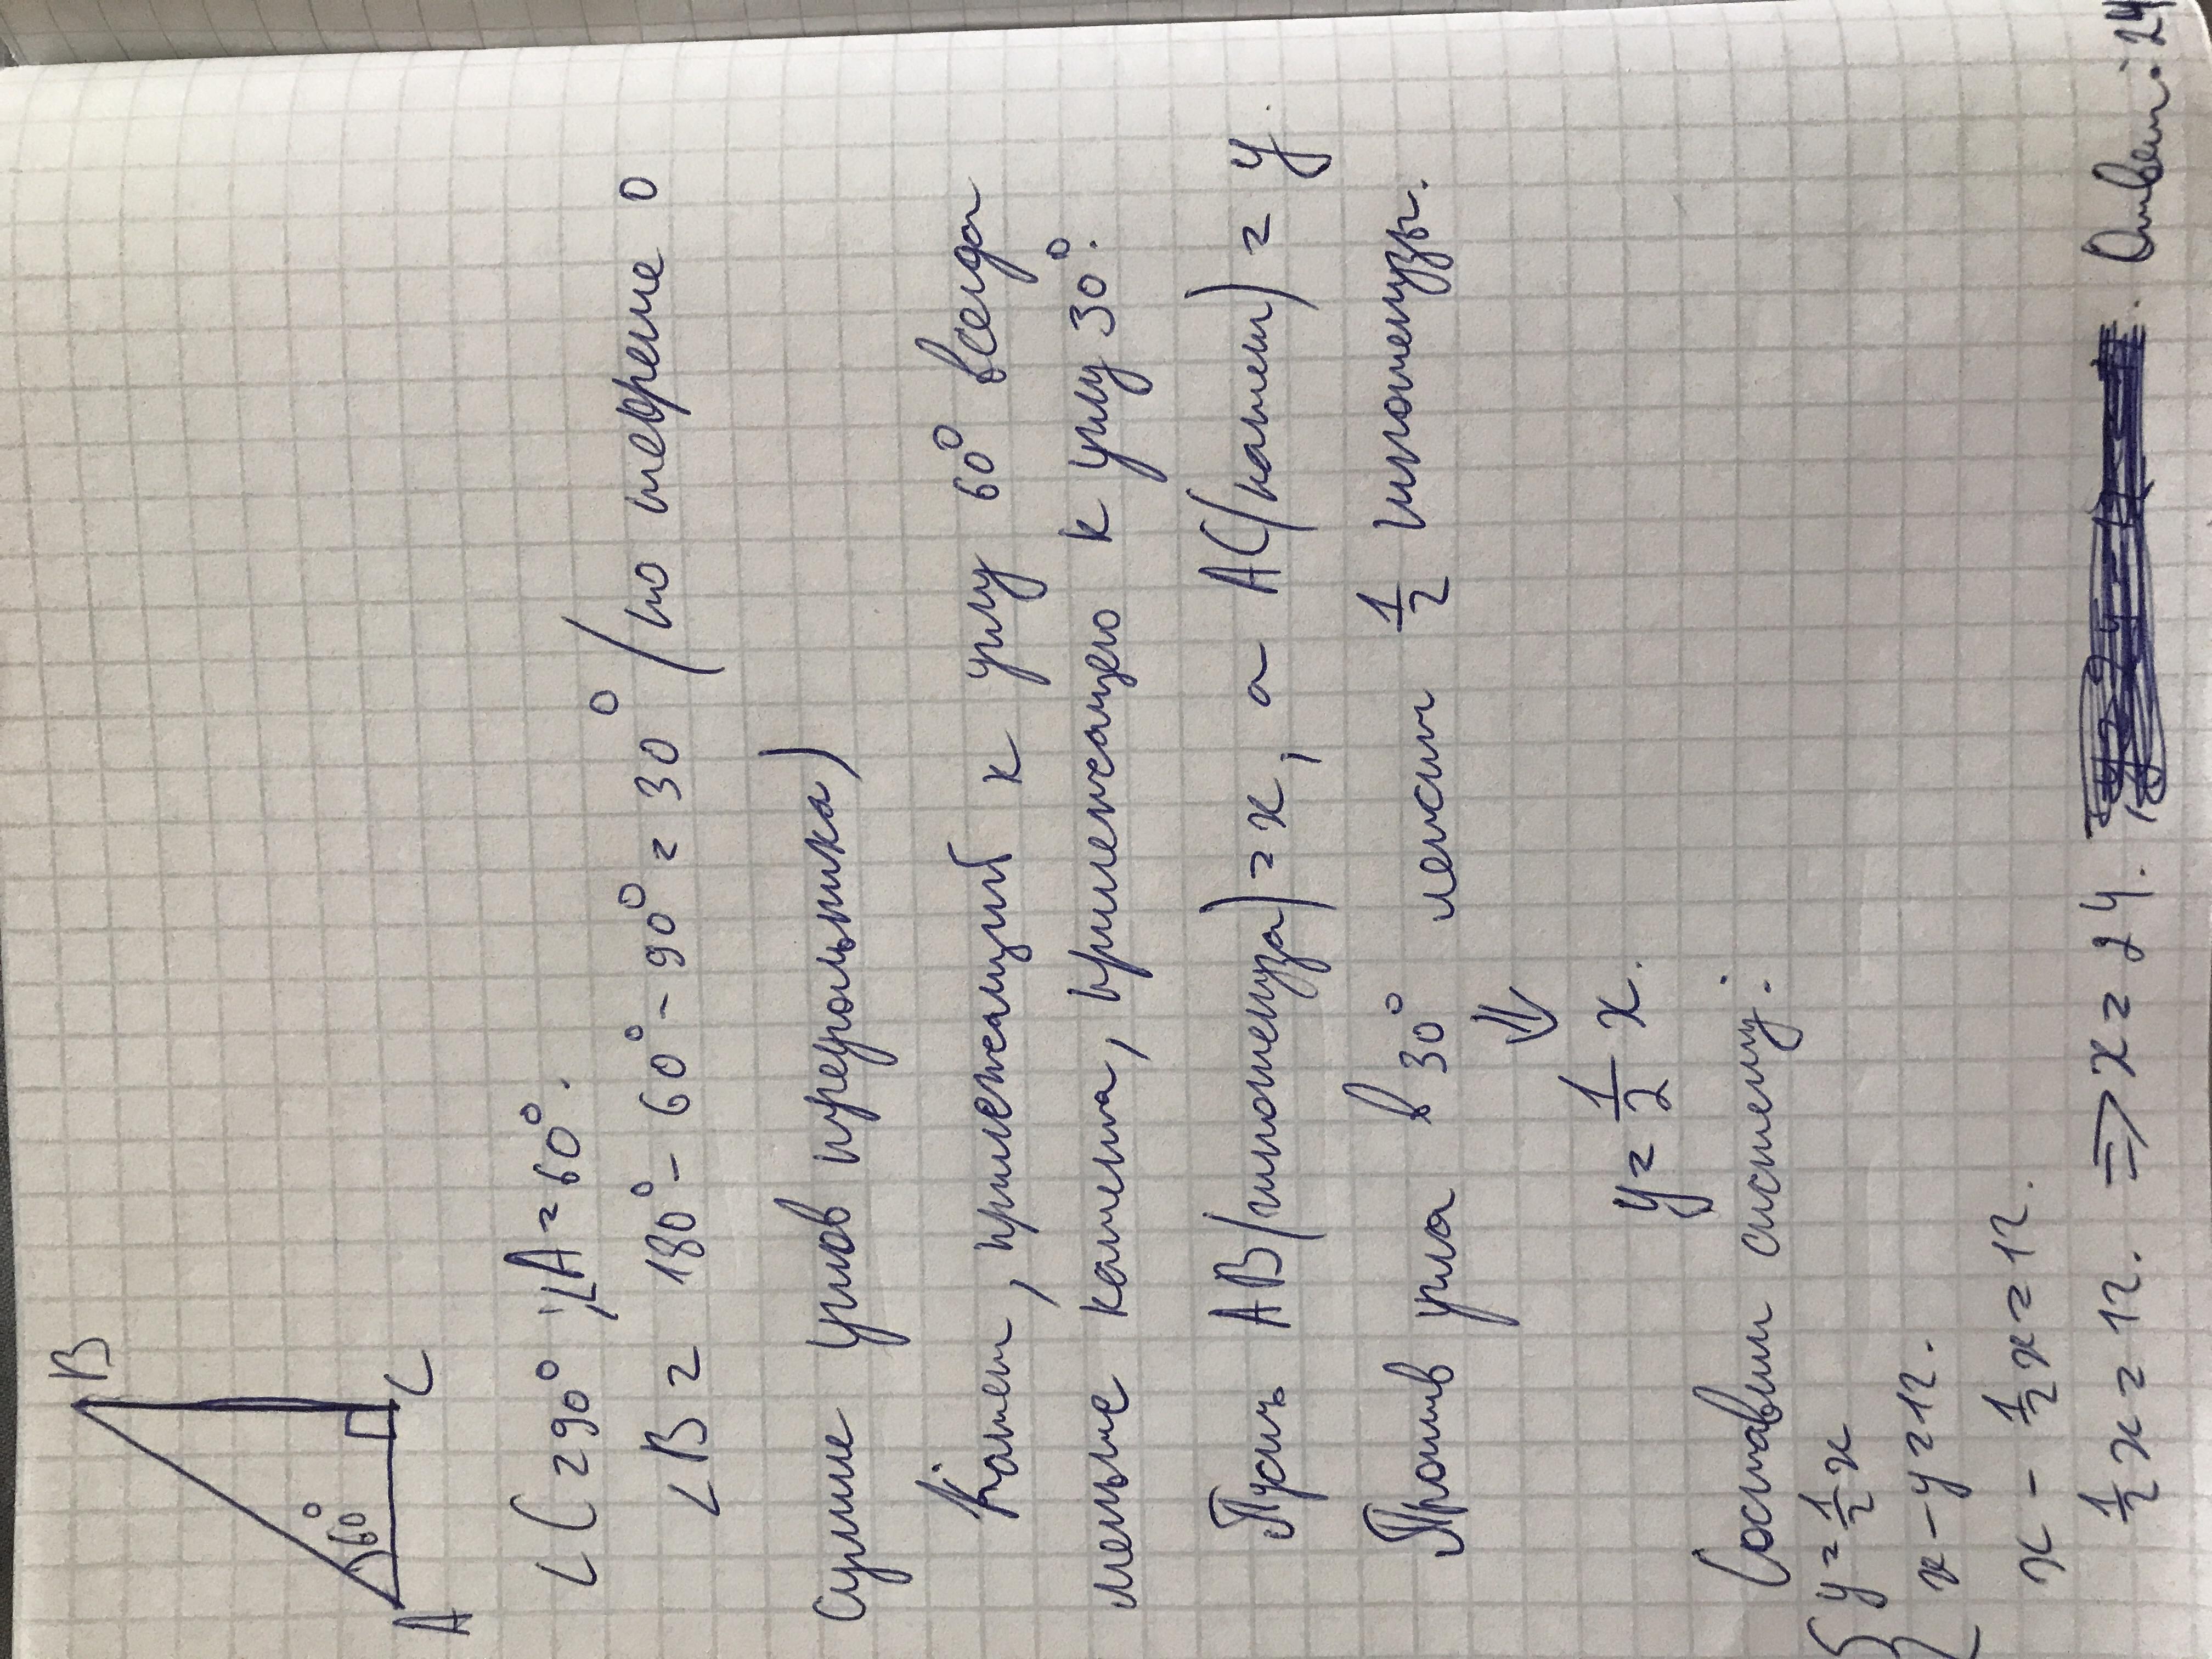 B
60°
A
C
∠C = 90°, ∠A = 60°.
∠B = 180° - 60° - 90° = 30° (по теореме о
сумме углов треугольника)
Катет, прилежащий к углу 60° всегда
меньше катета, прилежащего к углу 30°.
Пусть AB (гипотенуза) = x, а AC (катет) = y.
Против угла в 30° лежит 1/2 гипотенузы.
⇓
y = 1/2 x.
Составим систему:
{ y = 1/2 x
x - y = 12.
x - 1/2 x = 12.
1/2 x = 12. ⇒ x = 24. Ответ: 24